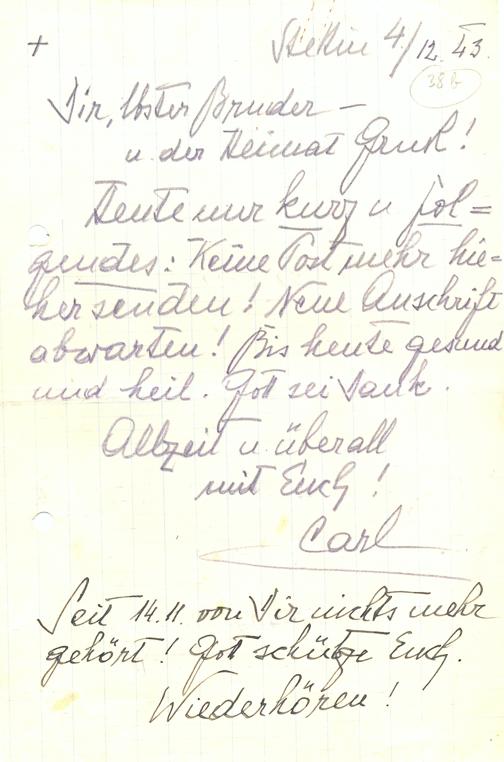 + Stettin 4/12.43.
38 b
Dir, lbster Bruder –
u. der Heimat Gruß!
Heute nur kurz u. fol=
gendes: Keine Post mehr hie=
her senden! Neue Anschrift
abwarten! Bis heute gesund
und heil. Gott sei Dank.
Allzeit u. überall
mit Euch!
Carl
Seit 14.11. von Dir nichts mehr
gehört! Gott schütze Euch.
Wiederhören!